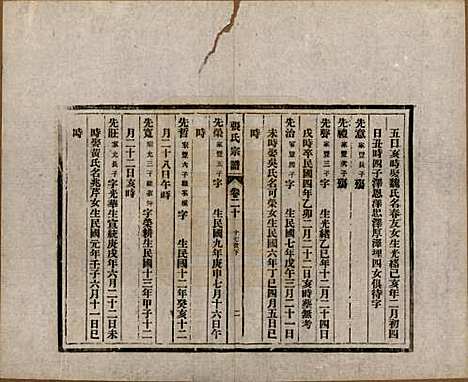 五日亥時娶魏氏名春友女生光緒己亥年二月初四
日丑時四子澤恩澤思澤厚澤埋四女俱待字
先意 家豐次子殤
先禮 家豐三子殤
先聲 家豐四子 字 生光緒乙巳年十二月二十四日
戌時卒民國四年乙卯二月二十二日亥時葬無考
先治 家豐五子 字 生民國七年戊午三月二十一日
未時娶吳氏名可榮女生民國六年丁巳四月五日巳
時
張氏宗譜 卷二十 二
先榮 家豐五子 字 生民國九年庚申七月十六日午
時
先哲 字 生民國十二年癸亥十二
月二十八日午時
先寬 字榮耕生民國十三年甲子十二
月二十二日亥時
先莊 家允長子 字光華生宣統庚戌年六月二十二日未
時娶黃氏名兆芹女生民國元年壬子六月十一日巳
時